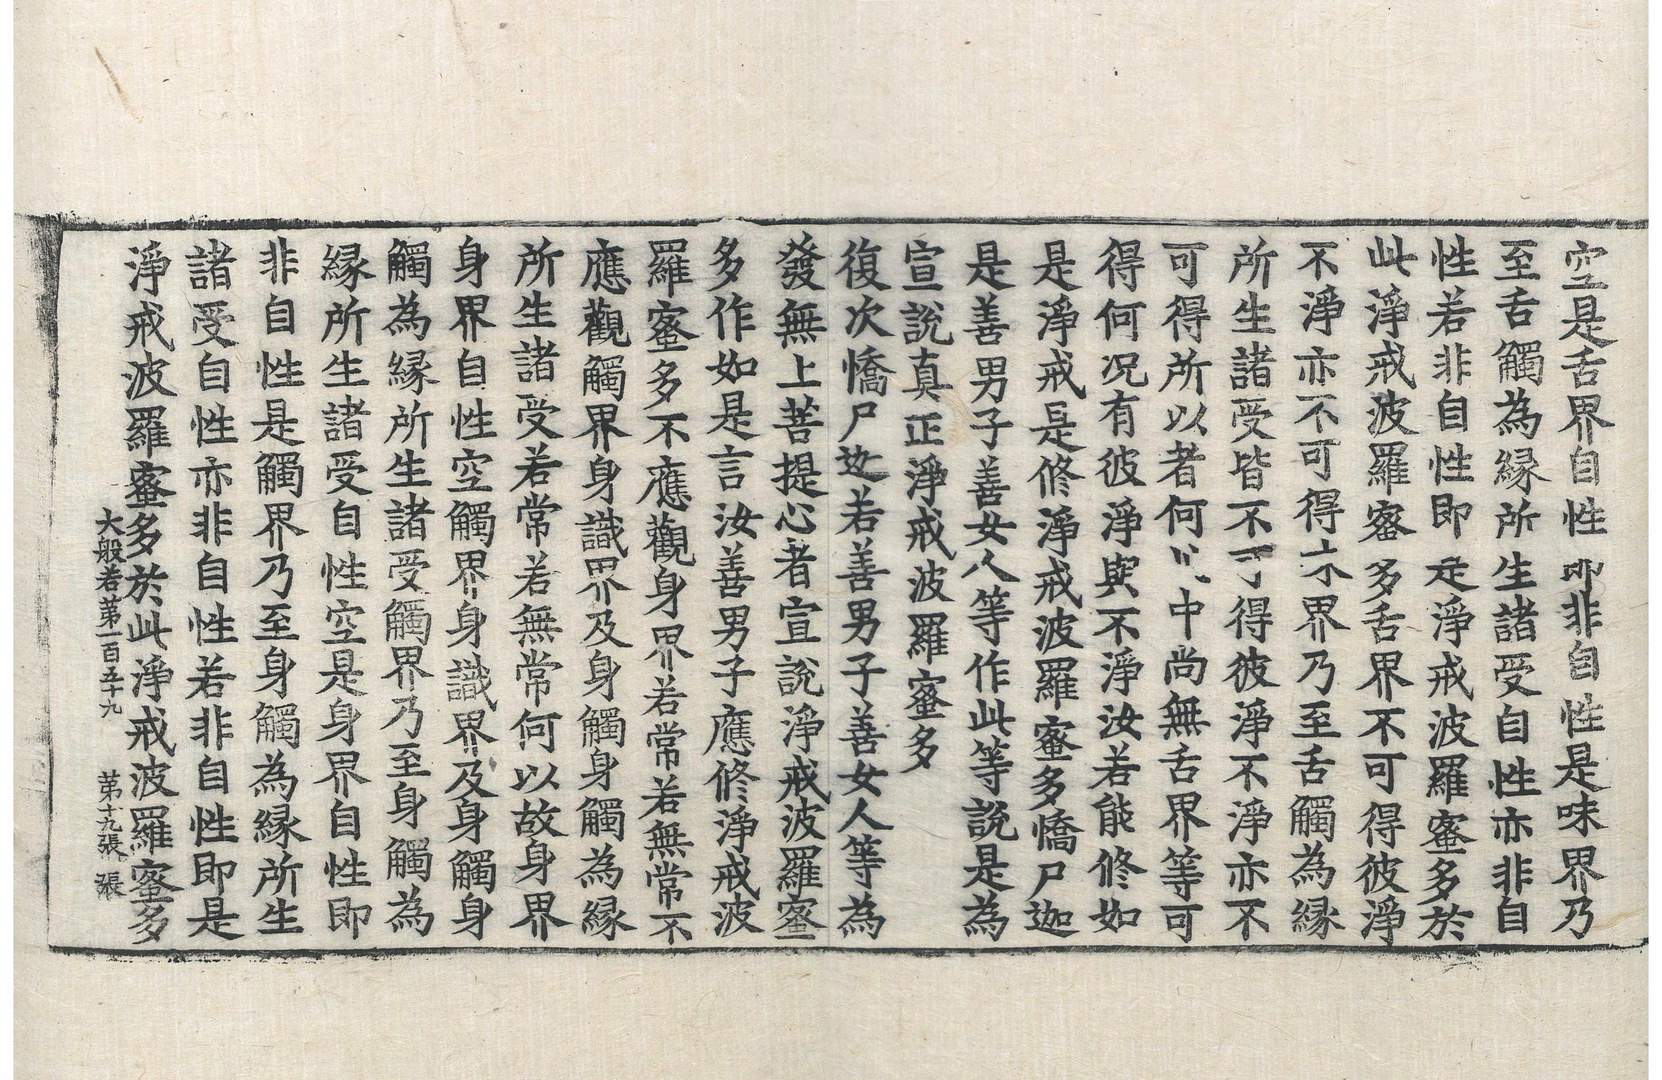 空是舌界自性即非自性是味界乃
至舌觸為緣所生諸受自性亦非自
性若非自性即是淨戒波羅蜜多於
此淨戒波羅蜜多舌界不可得彼淨
不淨亦不可得味界乃至舌觸為緣
所生諸受皆不可得彼淨不淨亦不
可得所以者何此中尚無舌界等可
得何况有彼淨與不淨汝若能修如
是淨戒是修淨戒波羅蜜多憍尸迦
是善男子善女人等作此等說是為
宣說真正淨戒波羅蜜多
復次憍尸迦若善男子善女人等為
發無上菩提心者宣說淨戒波羅蜜
多作如是言汝善男子應修淨戒波
羅蜜多不應觀身界若常若無常不
應觀觸界身識界及身觸身觸為緣
所生諸受若常若無常何以故身界
身界自性空觸界身識界及身觸身
觸為緣所生諸受觸界乃至身觸為
緣所生諸受自性空是身界自性即
非自性是觸界乃至身觸為緣所生
諸受自性亦非自性若非自性即是
淨戒波羅蜜多於此淨戒波羅蜜多
大般若第一百五十九 第十九張 張